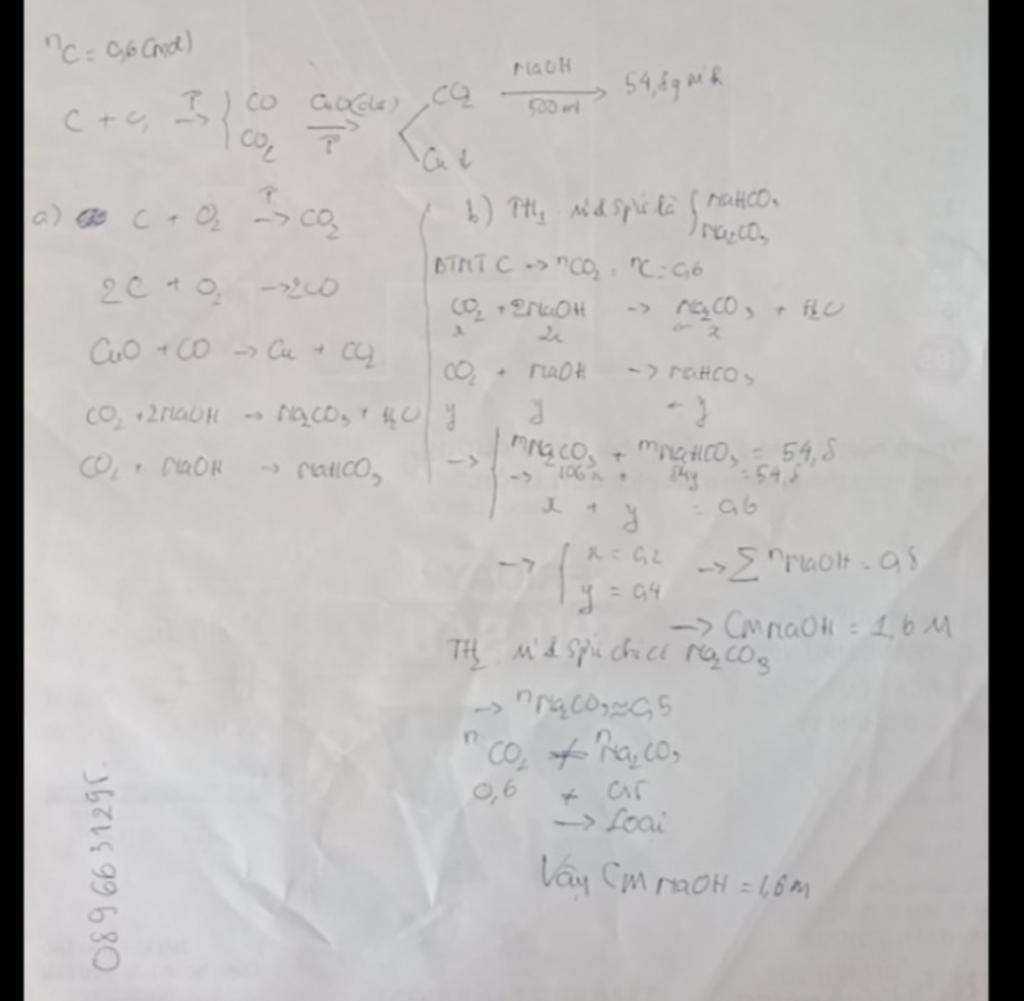 nC = 0,6 (mol)
C + O2 T→ { CO CO2 CuO(dư) T→ CO2 NaOH 500ml → 54,8g
Cu ↓
a) C + O2 T→ CO2
2C + O2 → 2CO
CuO + CO → Cu + CO2
CO2 + 2NaOH → Na2CO3 + H2O
CO2 + NaOH → NaHCO3
b) TH1 { NaHCO3
Na2CO3
BTNT C → nCO2 = nC = 0,6
CO2 + 2NaOH → Na2CO3 + H2O
x 2x ← x
CO2 + NaOH → NaHCO3
y y ← y
→ { mNa2CO3 + mNaHCO3 = 54,8
→ 106x + 84y = 54,8
x + y = 0,6
→ { x = 0,2 → ∑ nNaOH = 0,8
y = 0,4
→ CM NaOH = 1,6 M
TH2 Na2CO3
→ nNa2CO3 ≈ 0,5
nCO2 ≠ nNa2CO3
0,6 ≠ 0,5
→ Loại
Vậy CM NaOH = 1,6M
0896631295.